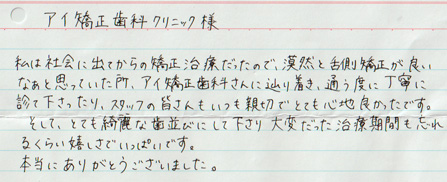 アイ矯正歯科クリニック様
私は社会に出てからの矯正治療だったので、漠然と舌側矯正が良い
なぁと思っていた所、アイ矯正歯科さんに辿り着き、通う度に丁寧に
診て下さったり、スタッフの皆さんもいつも親切でとても心地良かったです。
そして、とても綺麗な歯並びにして下さり大変だった治療期間も忘れ
るくらい嬉しさでいっぱいです。
本当にありがとうございました。